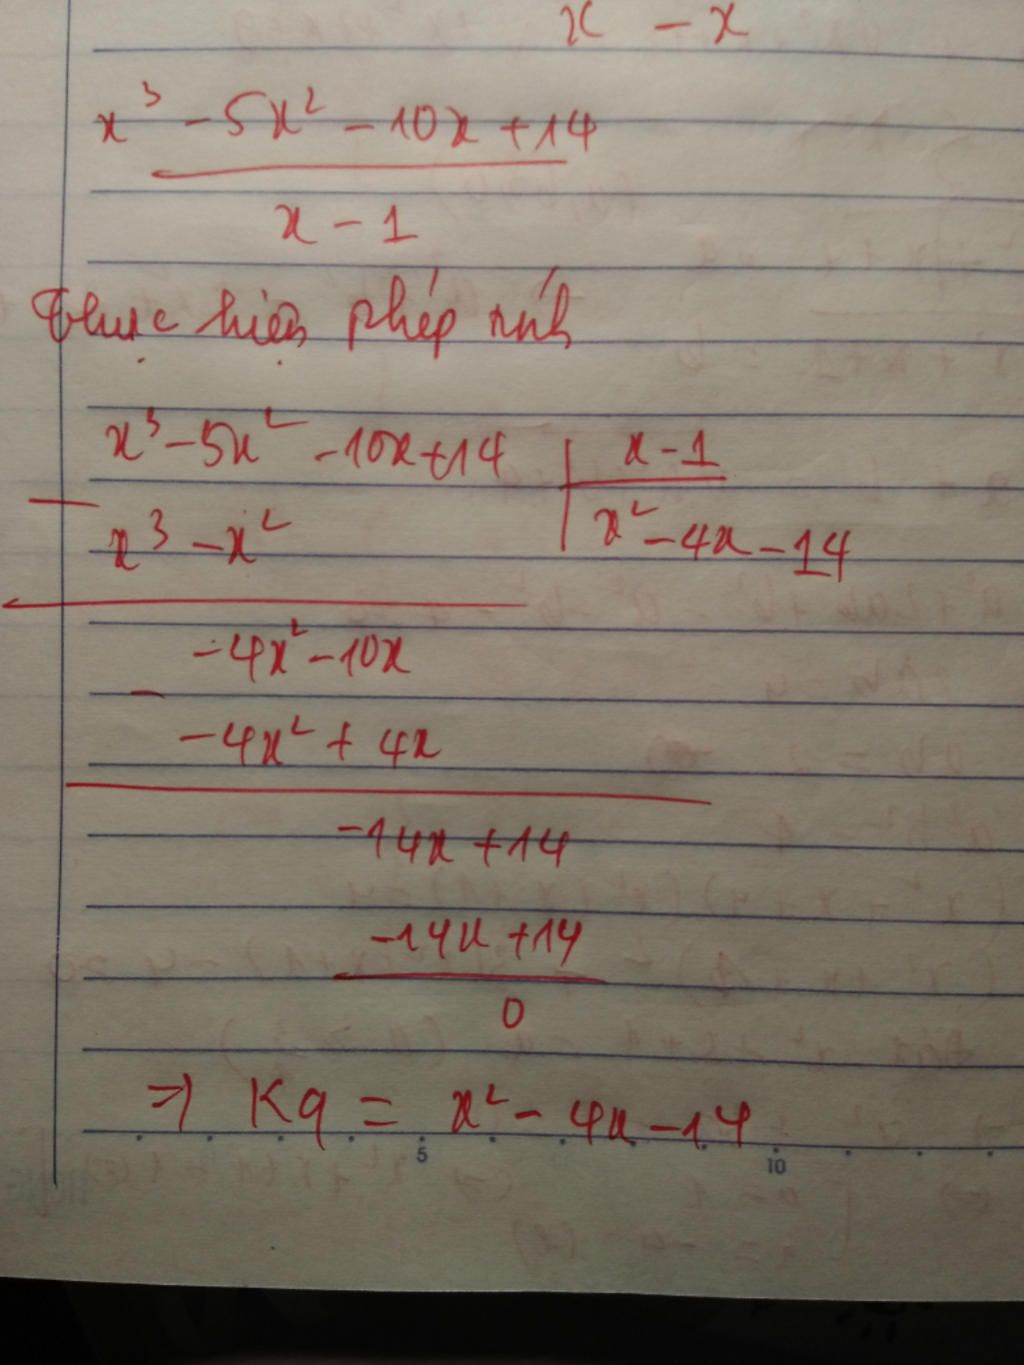 x - x
x³ - 5x² - 10x + 14
x - 1
Thực hiện phép tính
x³ - 5x² - 10x + 14 | x - 1
- x³ - x² | x² - 4x - 14
-4x² - 10x
- -4x² + 4x
-14x + 14
-14x + 14
0
=> Kq = x² - 4x - 14
5 10